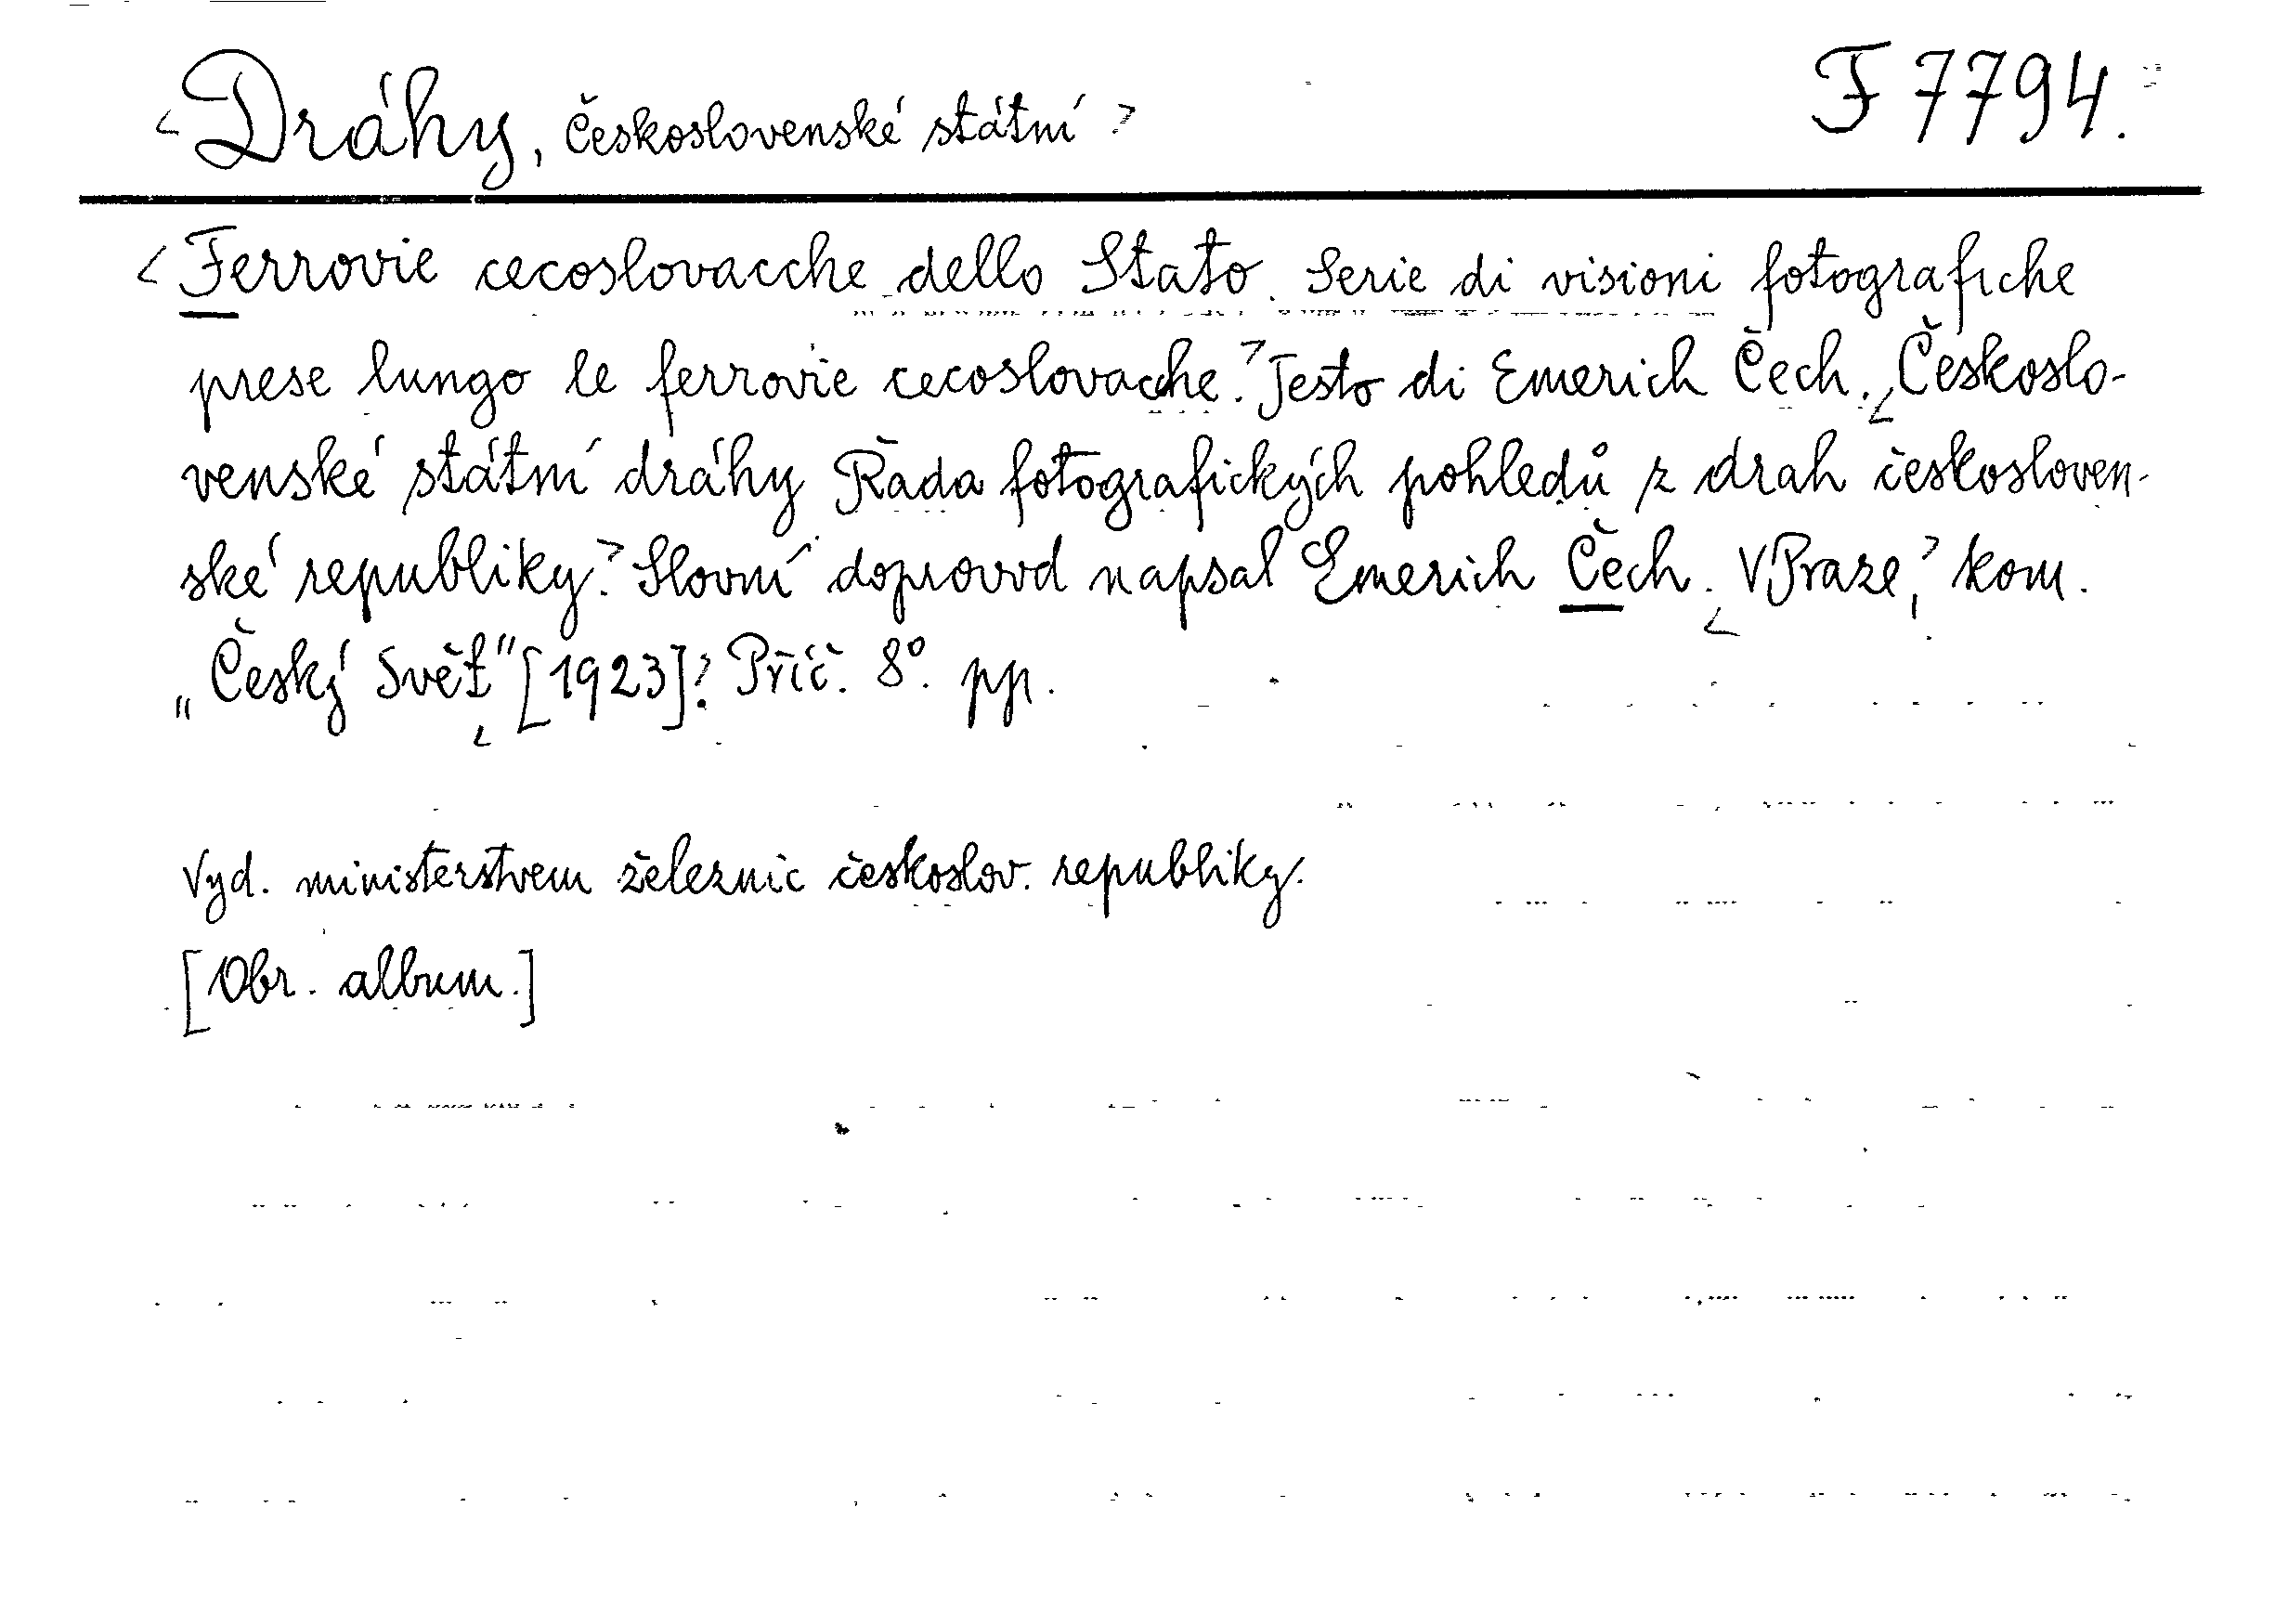 <Dráhy, československé státní> F 7794.
<Ferrovie cecoslovacche dello Stato. Serie di visioni fotografiche
prese lungo le ferrovie cecoslovacche.> Testo di Emerich Čech. <Českoslo-
venské státní dráhy Řada fotografických pohledů z drah českosloven-
ské republiky.> Slovní doprovod napsal Emerich Čech. <V Praze,> kom.
„Český Svět" <[1923].> Příč. 8°. pp.
Vyd. ministerstvem železnic českoslov. republiky.
[Obr. album.]